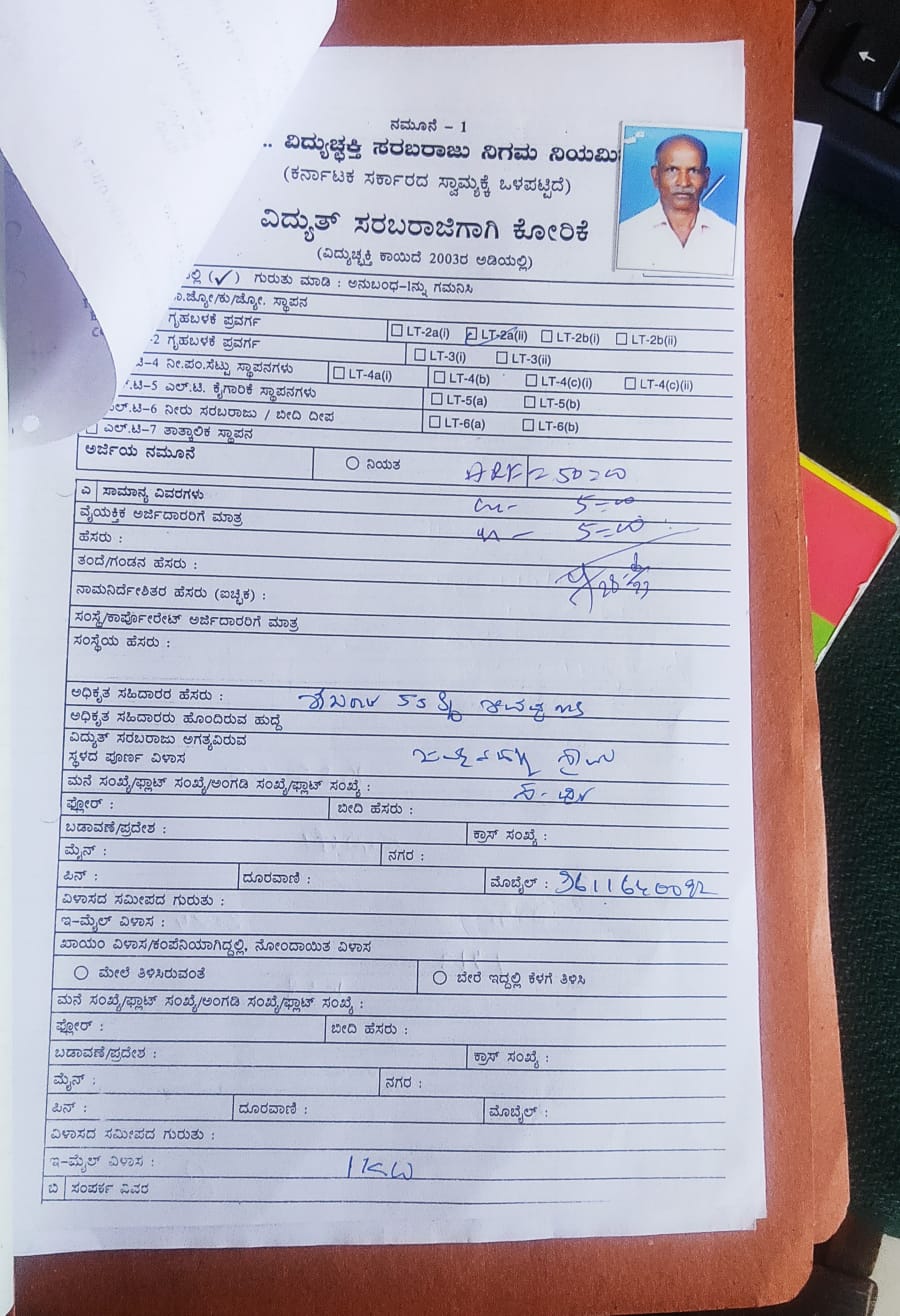 ನಮೂನೆ – 1
.. ವಿದ್ಯುಚ್ಛಕ್ತಿ ಸರಬರಾಜು ನಿಗಮ ನಿಯಮಿ
(ಕರ್ನಾಟಕ ಸರ್ಕಾರದ ಸ್ವಾಮ್ಯಕ್ಕೆ ಒಳಪಟ್ಟಿದೆ)
ವಿದ್ಯುತ್ ಸರಬರಾಜಿಗಾಗಿ ಕೋರಿಕೆ
(ವಿದ್ಯುಚ್ಛಕ್ತಿ ಕಾಯಿದೆ 2003ರ ಅಡಿಯಲ್ಲಿ)
ಲ್ಲಿ (✓) ಗುರುತು ಮಾಡಿ : ಅನುಬಂಧ-Iನ್ನು ಗಮನಿಸಿ
ಜ್ಯೋ/ಕು/ಜ್ಯೋ. ಸ್ಥಾಪನ
ಗೃಹಬಳಕೆ ಪ್ರವರ್ಗ ☐ LT-2a(i) ☑ LT-2a(ii) ☐ LT-2b(i) ☐ LT-2b(ii)
-2 ಗೃಹಬಳಕೆ ಪ್ರವರ್ಗ ☐ LT-3(i) ☐ LT-3(ii)
-4 ನೀ.ಪಂ.ಸೆಟ್ಟು ಸ್ಥಾಪನಗಳು ☐ LT-4a(i) ☐ LT-4(b) ☐ LT-4(c)(i) ☐ LT-4(c)(ii)
.ಟಿ-5 ಎಲ್.ಟಿ. ಕೈಗಾರಿಕೆ ಸ್ಥಾಪನಗಳು ☐ LT-5(a) ☐ LT-5(b)
ಎಲ್.ಟಿ-6 ನೀರು ಸರಬರಾಜು / ಬೀದಿ ದೀಪ ☐ LT-6(a) ☐ LT-6(b)
☐ ಎಲ್.ಟಿ-7 ತಾತ್ಕಾಲಿಕ ಸ್ಥಾಪನ
ಅರ್ಜಿಯ ನಮೂನೆ ○ ನಿಯತ
ಎ ಸಾಮಾನ್ಯ ವಿವರಗಳು
ವೈಯಕ್ತಿಕ ಅರ್ಜಿದಾರರಿಗೆ ಮಾತ್ರ
ಹೆಸರು :
ತಂದೆ/ಗಂಡನ ಹೆಸರು :
ನಾಮನಿರ್ದೇಶಿತರ ಹೆಸರು (ಐಚ್ಛಿಕ) :
ಸಂಸ್ಥೆ/ಕಾರ್ಪೋರೇಟ್ ಅರ್ಜಿದಾರರಿಗೆ ಮಾತ್ರ
ಸಂಸ್ಥೆಯ ಹೆಸರು :
ಅಧಿಕೃತ ಸಹಿದಾರರ ಹೆಸರು :
ಅಧಿಕೃತ ಸಹಿದಾರರು ಹೊಂದಿರುವ ಹುದ್ದೆ
ವಿದ್ಯುತ್ ಸರಬರಾಜು ಅಗತ್ಯವಿರುವ
ಸ್ಥಳದ ಪೂರ್ಣ ವಿಳಾಸ
ಮನೆ ಸಂಖ್ಯೆ/ಫ್ಲಾಟ್ ಸಂಖ್ಯೆ/ಅಂಗಡಿ ಸಂಖ್ಯೆ/ಫ್ಲಾಟ್ ಸಂಖ್ಯೆ :
ಫ್ಲೋರ್ : ಬೀದಿ ಹೆಸರು :
ಬಡಾವಣೆ/ಪ್ರದೇಶ : ಕ್ರಾಸ್ ಸಂಖ್ಯೆ :
ಮೈನ್ : ನಗರ :
ಪಿನ್ : ದೂರವಾಣಿ : ಮೊಬೈಲ್ :
ವಿಳಾಸದ ಸಮೀಪದ ಗುರುತು :
ಇ-ಮೈಲ್ ವಿಳಾಸ :
ಖಾಯಂ ವಿಳಾಸ/ಕಂಪೆನಿಯಾಗಿದ್ದಲ್ಲಿ, ನೋಂದಾಯಿತ ವಿಳಾಸ
○ ಮೇಲೆ ತಿಳಿಸಿರುವಂತೆ ○ ಬೇರೆ ಇದ್ದಲ್ಲಿ ಕೆಳಗೆ ತಿಳಿಸಿ
ಮನೆ ಸಂಖ್ಯೆ/ಫ್ಲಾಟ್ ಸಂಖ್ಯೆ/ಅಂಗಡಿ ಸಂಖ್ಯೆ/ಫ್ಲಾಟ್ ಸಂಖ್ಯೆ :
ಫ್ಲೋರ್ : ಬೀದಿ ಹೆಸರು :
ಬಡಾವಣೆ/ಪ್ರದೇಶ : ಕ್ರಾಸ್ ಸಂಖ್ಯೆ :
ಮೈನ್ : ನಗರ :
ಪಿನ್ : ದೂರವಾಣಿ : ಮೊಬೈಲ್ :
ವಿಳಾಸದ ಸಮೀಪದ ಗುರುತು :
ಇ-ಮೈಲ್ ವಿಳಾಸ : 1KW
ಬಿ ಸಂಪರ್ಕ ವಿವರ